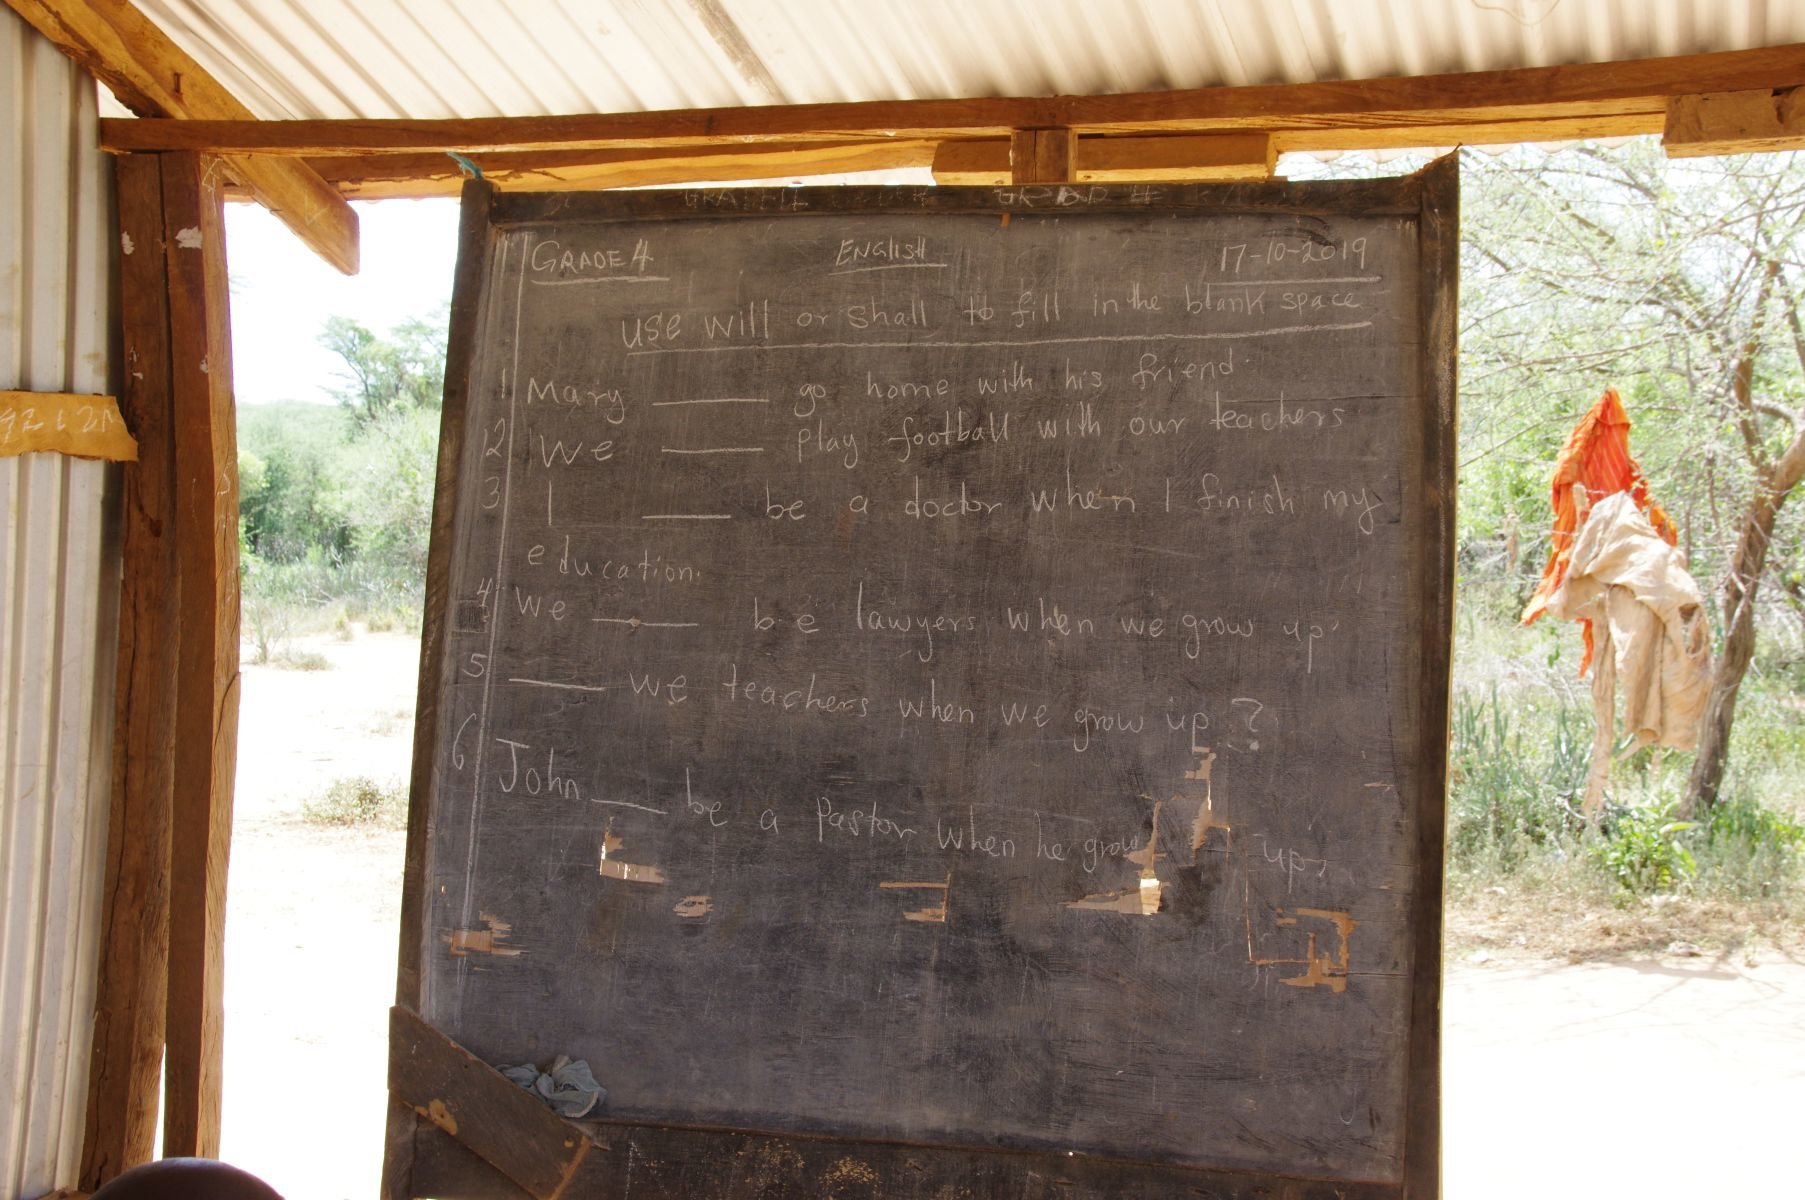 GRADE 4 ENGLISH 17-10-2019
USE will or shall to fill in the blank space
1 Mary ____ go home with his friend.
2 We ____ play football with our teachers
3 I ____ be a doctor when I finish my
education.
4 We ____ be lawyers when we grow up.
5 ____ we teachers when we grow up?
6 John ____ be a Pastor when he grow up.